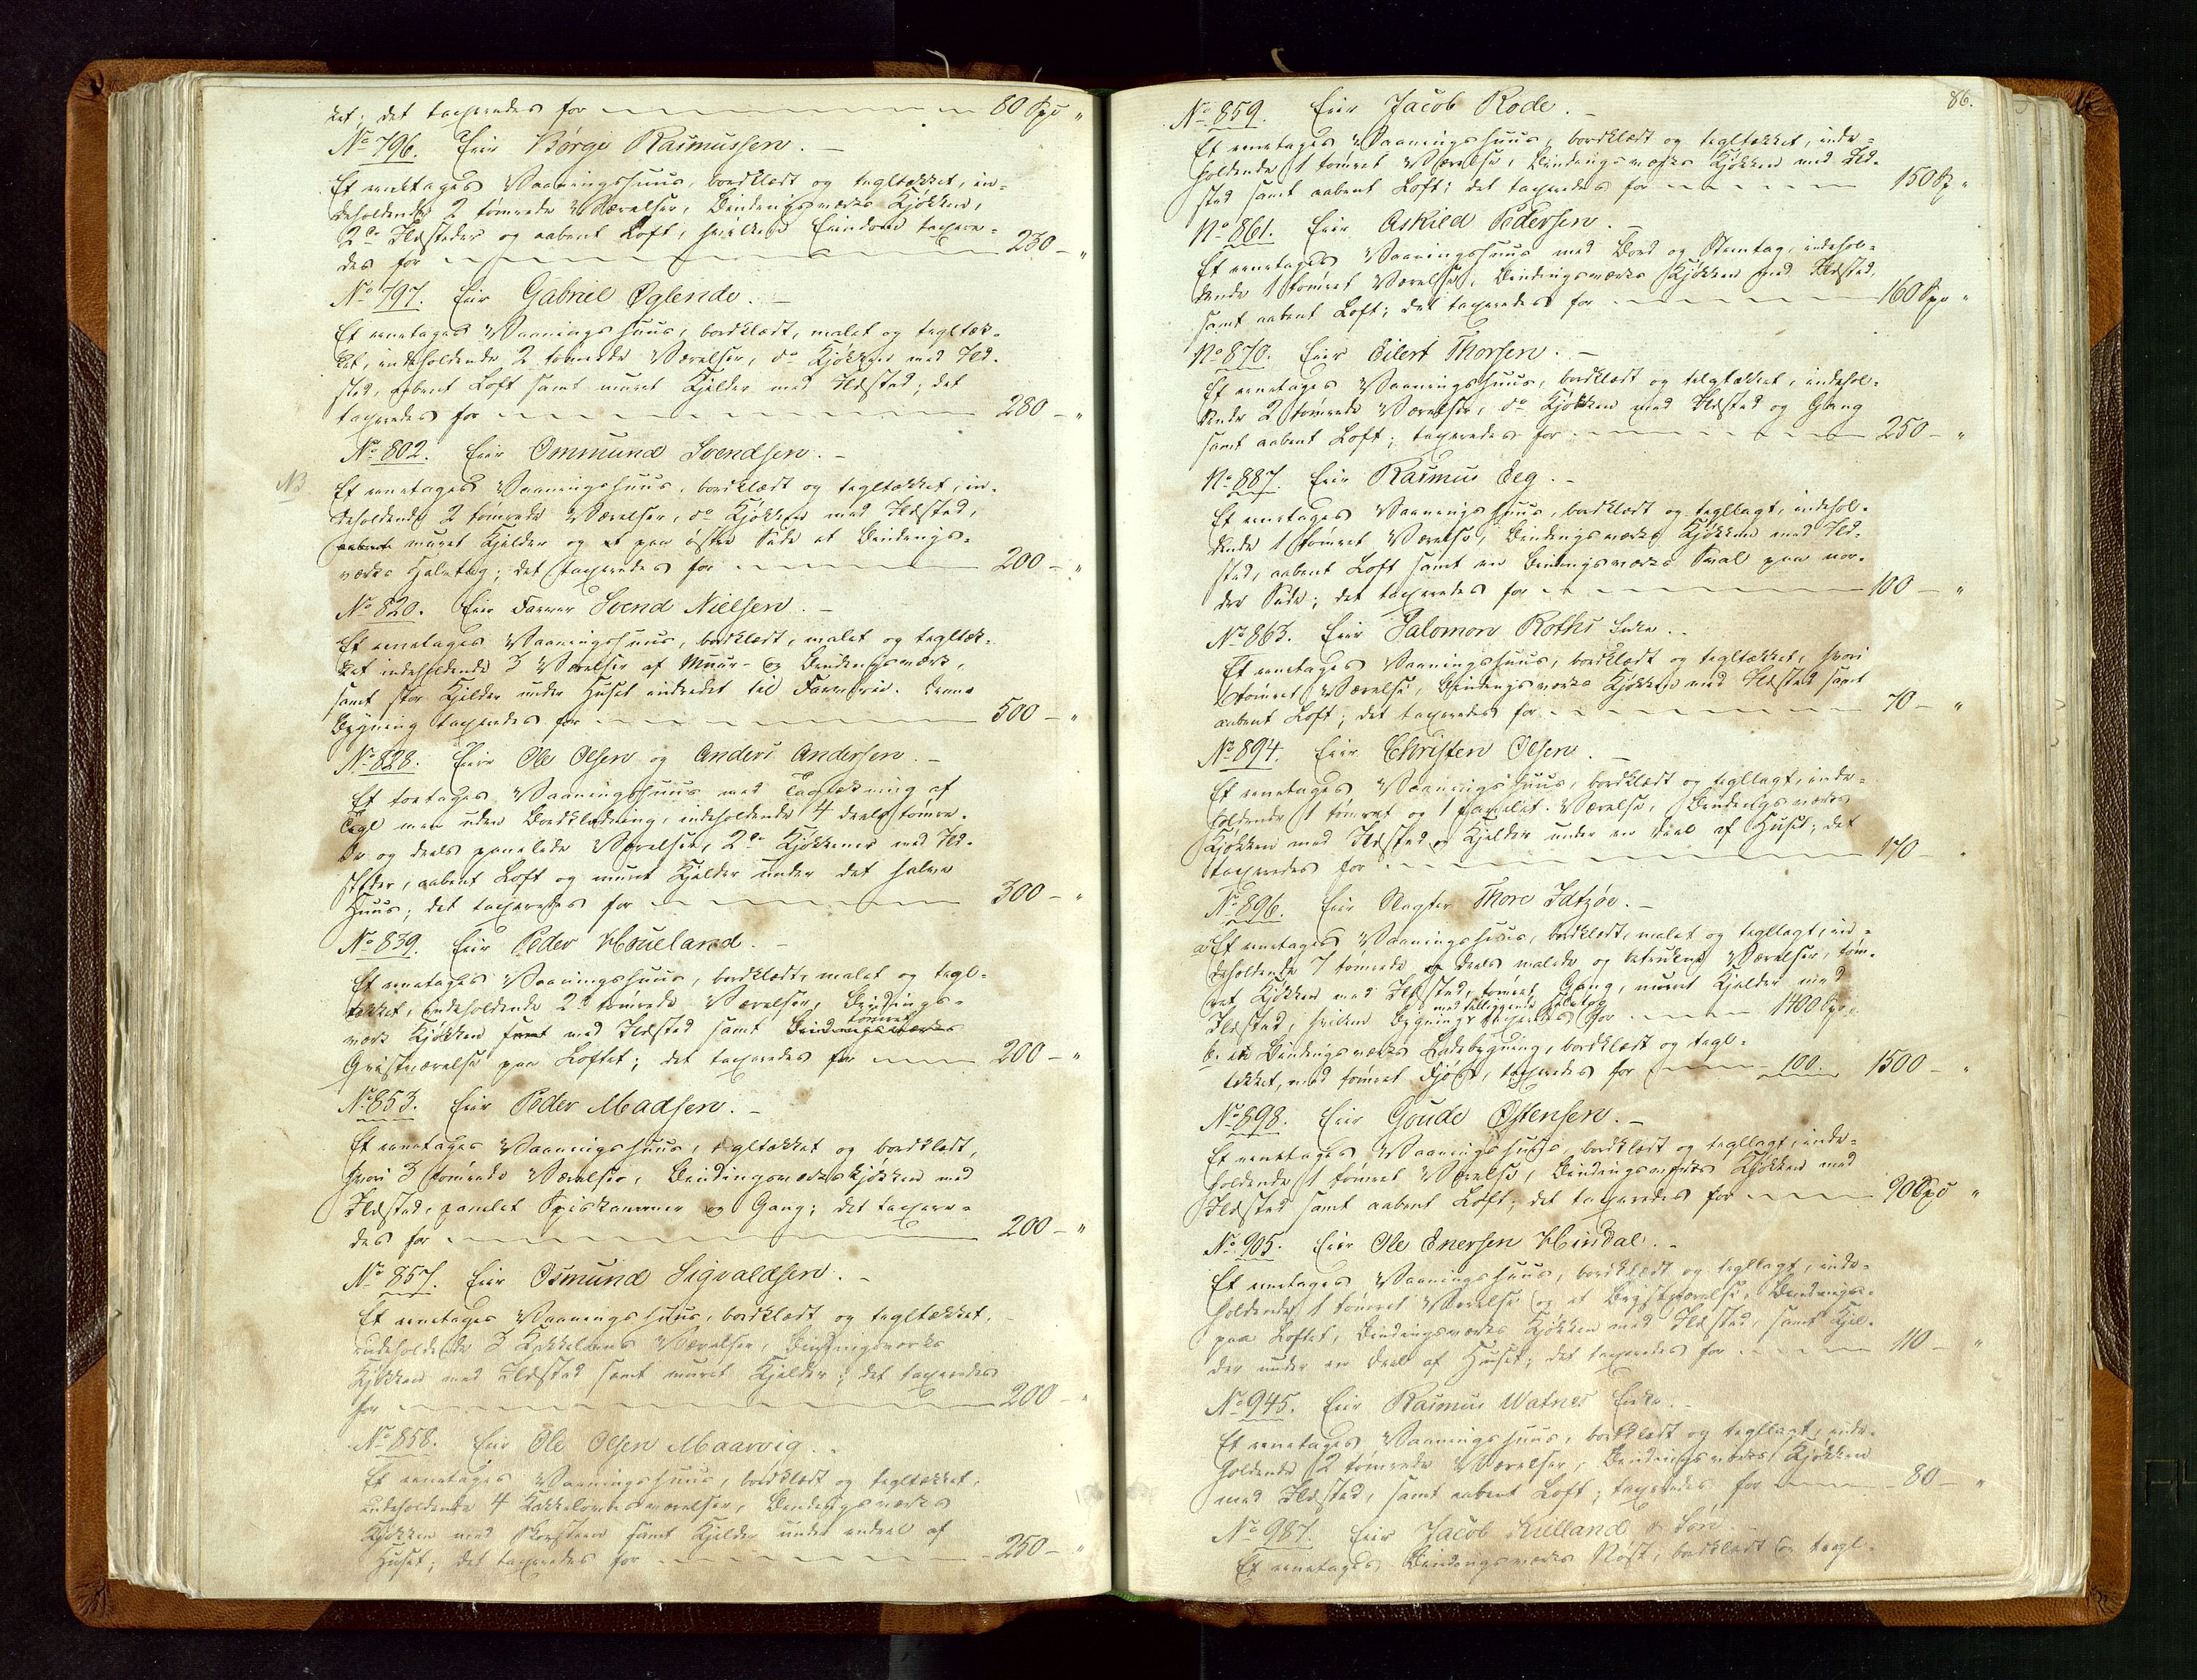 ket; det taxeredes for 80 Spd "
No 796. Eier Børge Rasmussen. -
Et eenetages Vaaningshuus, bordklædt og tegltækket, in-
deholdende 2 tømrede Værelser, Bindingsværks Kjøkken,
2de Ildsteder og aabent Loft, hvilken Eiendom taxere-
des for 230 - "
No 797. Eier Gabriel Øglende. -
Et eenetages Vaaningshuus, bordklædt, malet og tegltæk-
ket, indeholdende 2 tømrede Værelser, do Kjøkken med Ild-
sted, aabent Loft samt muret Kjelder med Ildsted; det
taxeredes for 280 - "
No 802. Eier Ommund Svendsen. -
NB Et eenetages Vaaningshuus, bordklædt og tegltækket, in-
deholdende 2 tømrede Værelser, do Kjøkken med Ildsted,
aabent muret Kjelder og et paa østre Side et Bindings-
værks Halvtag; det taxeredes for 200 - "
No 820. Eier Farver Svend Nielsen. -
Et eenetages Vaaningshuus, bordklædt, malet og tegltæk-
ket indeholdende 3 Værelser af Muur- og Bindingsværk,
samt stor Kjelder under Huset indredet til Farveri. Denne
Bygning taxeredes for 500 - "
No 828. Eiere Ole Olsen og Anders Andersen. -
Et toetages Vaaningshuus med Tagtækning af
Tegl men uden Bordklædning, indeholdende 4 deels tømre-
de og deels panelede Værelser, 2de Kjøkkener med Ild-
steder, aabent Loft og muret Kjelder under det halve
Huus; det taxeredes for 300 - "
No 839. Eier Peder Houeland. -
Et eenetages Vaaningshuus, bordklædt, malet og tegl-
tækket, indeholdende 2de tømrede Værelser, Bindings-
værks Kjøkken samt med Ildsted samt Bindingsværks tømret
Qvistværelse paa Loftet; det taxeredes for 200 - "
No 853. Eier Peder Madsen. -
Et eenetages Vaaningshuus, tegltækket og bordklædt,
hvori 3 tømrede Værelser, Bindingsværkskjøkken med
Ildsted, panelet Spiskammer og Gang; det taxere-
des for 200 - "
No 857. Eier Osmund Sigvaldsen. -
Et eenetages Vaaningshuus, bordklædt og tegltækket,
indeholdende 3 Kakkelovns Værelser, Bindingsværks
Kjøkken med Ildsted samt muret Kjelder; det taxeredes
for 200 - "
No 858. Eier Ole Olsen Maarvig. -
Et eenetages Vaaningshuus, bordklædt og tegltækket,
indeholdende 4 Kakkelovnsværelser, Bindingsværks
Kjøkken med Skorsteen samt Kjelder under endeel af
Huset; det taxeredes for 250 - "
86.
No 859. Eier Jacob Rode. -
Et eenetages Vaaningshuus, bordklædt og tegltækket, inde-
holdende 1 tømret Værelse, Bindingsværks Kjøkken med Ild-
sted samt aabent Loft; det taxeredes for 150 Sp "
No 861. Eier Askild Pedersen. -
Et eenetages Vaaningshuus med Bord og Steentag, indehol-
dende 1 tømret Værelse, Bindingsværks Kjøkken med Ildsted
samt aabent Loft; det taxeredes for 160 Spd "
No 870. Eier Eilert Thorsen. -
Et eenetages Vaaningshuus, bordklædt og telgtækket, indehol-
dende 2 tømrede Værelser, do Kjøkken med Ildsted og Gang
samt aabent Loft; taxeredes for 250 - "
No 887. Eier Rasmus Eeg. -
Et eenetages Vaaningshuus, bordklædt og tegllagt, indehol-
dende 1 tømret Værelse, Bindingsværks Kjøkken med Ild-
sted, aabent Loft samt en Bindingsværks Sval paa nor-
dre Side; det taxeredes for 100 - "
No 863. Eier Salomon Roths Enke. -
Et eenetages Vaaningshuus, bordklædt og tegltækket, hvori
1 tømret Værelse, Bindingsværks Kjøkken med Ildsted samt
aabent Loft; det taxeredes for 70 - "
No 894. Eier Christen Olsen. -
Et eenetages Vaaningshuus, bordklædt og tegllagt, inde-
holdende 1 tømret og 1 panelet Værelse, Bindingsværks
Kjøkken med Ildsted og Kjelder under en Deel af Huset; det
taxeredes for 170 - "
No 896. Eier Slagter Thore Idtzøe. -
a Et eenetages Vaaningshuus, bordklædt, malet og tegllagt, in-
deholdende 7 tømrede og deels malede og betrukne Værelser, tøm-
ret Kjøkken med Ildsted, tømret Gang, muret Kjelder med
Ildsted, hvilken Bygning med tilliggende Halvtag taxeredes for 1400 Spd "
b. et Bindingsværks Ladebygning, bordklædt og tegl-
tækket, med tømret Fjøs, taxeredes for 100. 1500 - "
No 898. Eier Goude Østensen. -
Et eenetages Vaaningshuus, bordklædt og tegllagt, inde-
holdende 1 tømret Værelse, Bindingsværks Kjøkken med
Ildsted samt aabent Loft; det taxeredes for 90 Spd "
No 905. Eier Ole Enersen Hindal. -
Et eenetages Vaaningshuus, bordklædt og tegllagt, inde-
holdende 1 tømret Værelse og et Bindings-
paa Loftet, Bindingsværks Kjøkken med Ildsted, samt Kjel-
der under en Deel af Huset; det taxeredes for 110 - "
No 945. Eier Rasmus Watnes Enke. -
Et eenetages Vaaningshuus, bordklædt og tegllagt, inde-
holdende 2 tømrede Værelser, Bindingsværks Kjøkken
med Ildsted, samt aabent Loft; taxeredes for 80 - "
No 987. Eier Jacob Kielland & Søn. -
Et eenetages Bindingsværks Nøst, bordklædt og tegl-